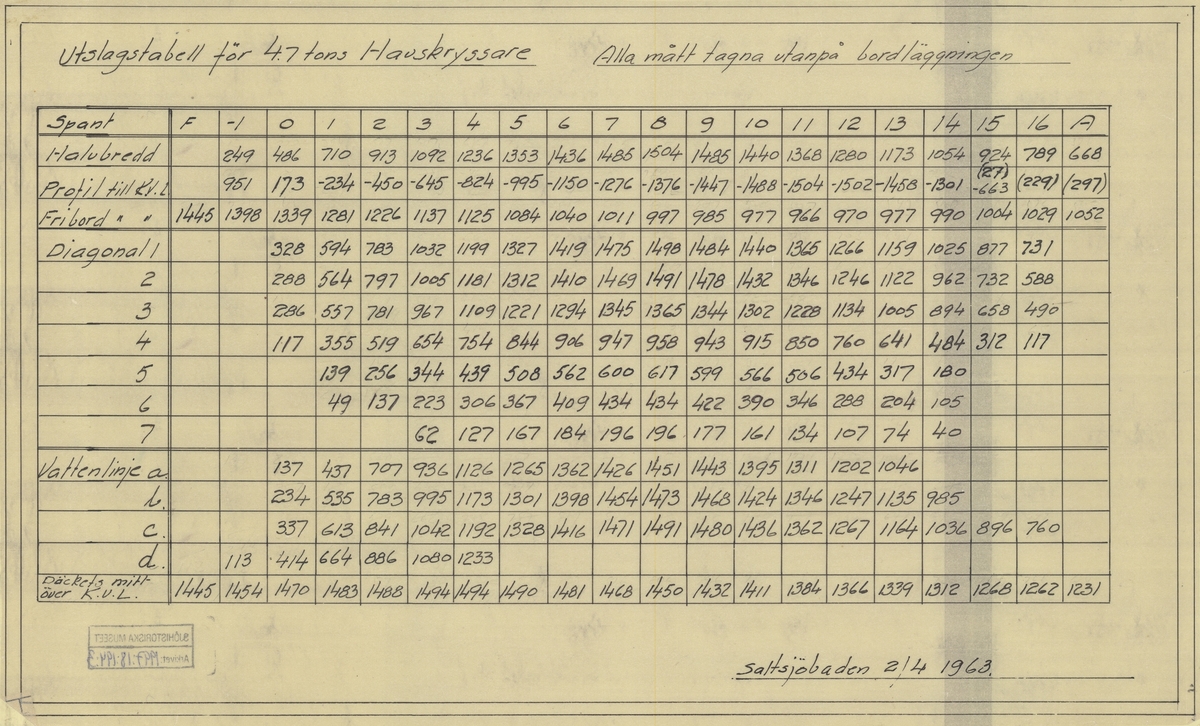 Utslagstabell för 4.7 tons Havskryssare Alla mått tagna utanpå bordläggningen
Spant F -1 0 1 2 3 4 5 6 7 8 9 10 11 12 13 14 15 16 A
Halvbredd 249 486 710 913 1092 1236 1353 1436 1485 1504 1485 1440 1368 1280 1173 1054 924 789 668
Profil till K.V.L 951 173 -234 -450 -645 -824 -995 -1150 -1276 -1376 -1447 -1488 -1504 -1502 -1458 -1301 (27) -663 (229) (297)
Fribord " " 1445 1398 1339 1281 1226 1137 1125 1084 1040 1011 997 985 977 966 970 977 990 1004 1029 1052
Diagonal 1 328 594 783 1032 1199 1327 1419 1475 1498 1484 1440 1365 1266 1159 1025 877 731
2 288 564 797 1005 1181 1312 1410 1469 1491 1478 1432 1346 1246 1122 962 732 588
3 286 557 781 967 1109 1221 1294 1345 1365 1344 1302 1228 1134 1005 894 658 490
4 117 355 519 654 754 844 906 947 958 943 915 850 760 641 484 312 117
5 139 256 344 439 508 562 600 617 599 566 506 434 317 180
6 49 137 223 306 367 409 434 434 422 390 346 288 204 105
7 62 127 167 184 196 196 177 161 134 107 74 40
Vattenlinje a. 137 437 707 936 1126 1265 1362 1426 1451 1443 1395 1311 1202 1046
b. 234 535 783 995 1173 1301 1398 1454 1473 1468 1424 1346 1247 1135 985
c. 337 613 841 1042 1192 1328 1416 1471 1491 1480 1436 1362 1267 1164 1036 896 760
d. 113 414 664 886 1080 1233
Däckets mitt över K.V.L. 1445 1454 1470 1483 1488 1494 1494 1490 1481 1468 1450 1432 1411 1384 1366 1339 1312 1268 1262 1231
SJÖHISTORISKA MUSEET
Saltsjöbaden 2/4 1963.